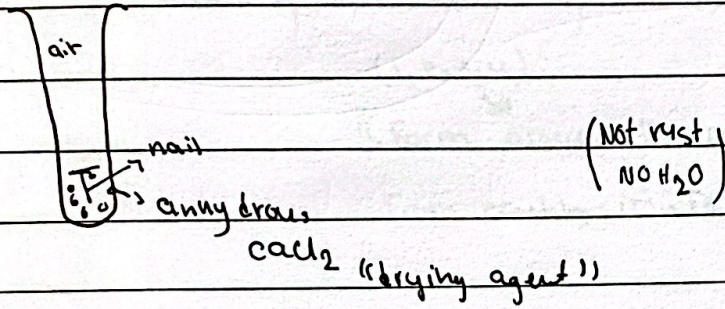 air
nail
(Not rust
NO H₂O)
annydrous
caCl₂ "drying agent"